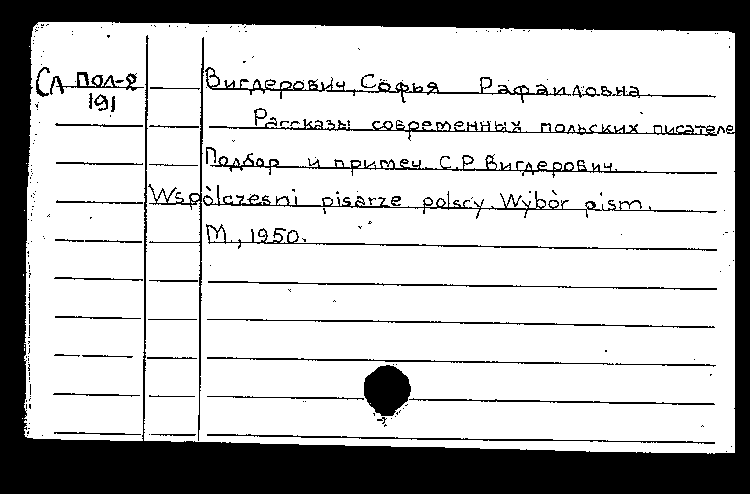 Сл Пол-2
191
Вигдерович, Софья Рафаиловна.
Рассказы современных польских писателе
Подбор и примеч. С.Р. Вигдерович.
Wspòlczesni pisarze polscy. Wybòr pism.
М., 1950.